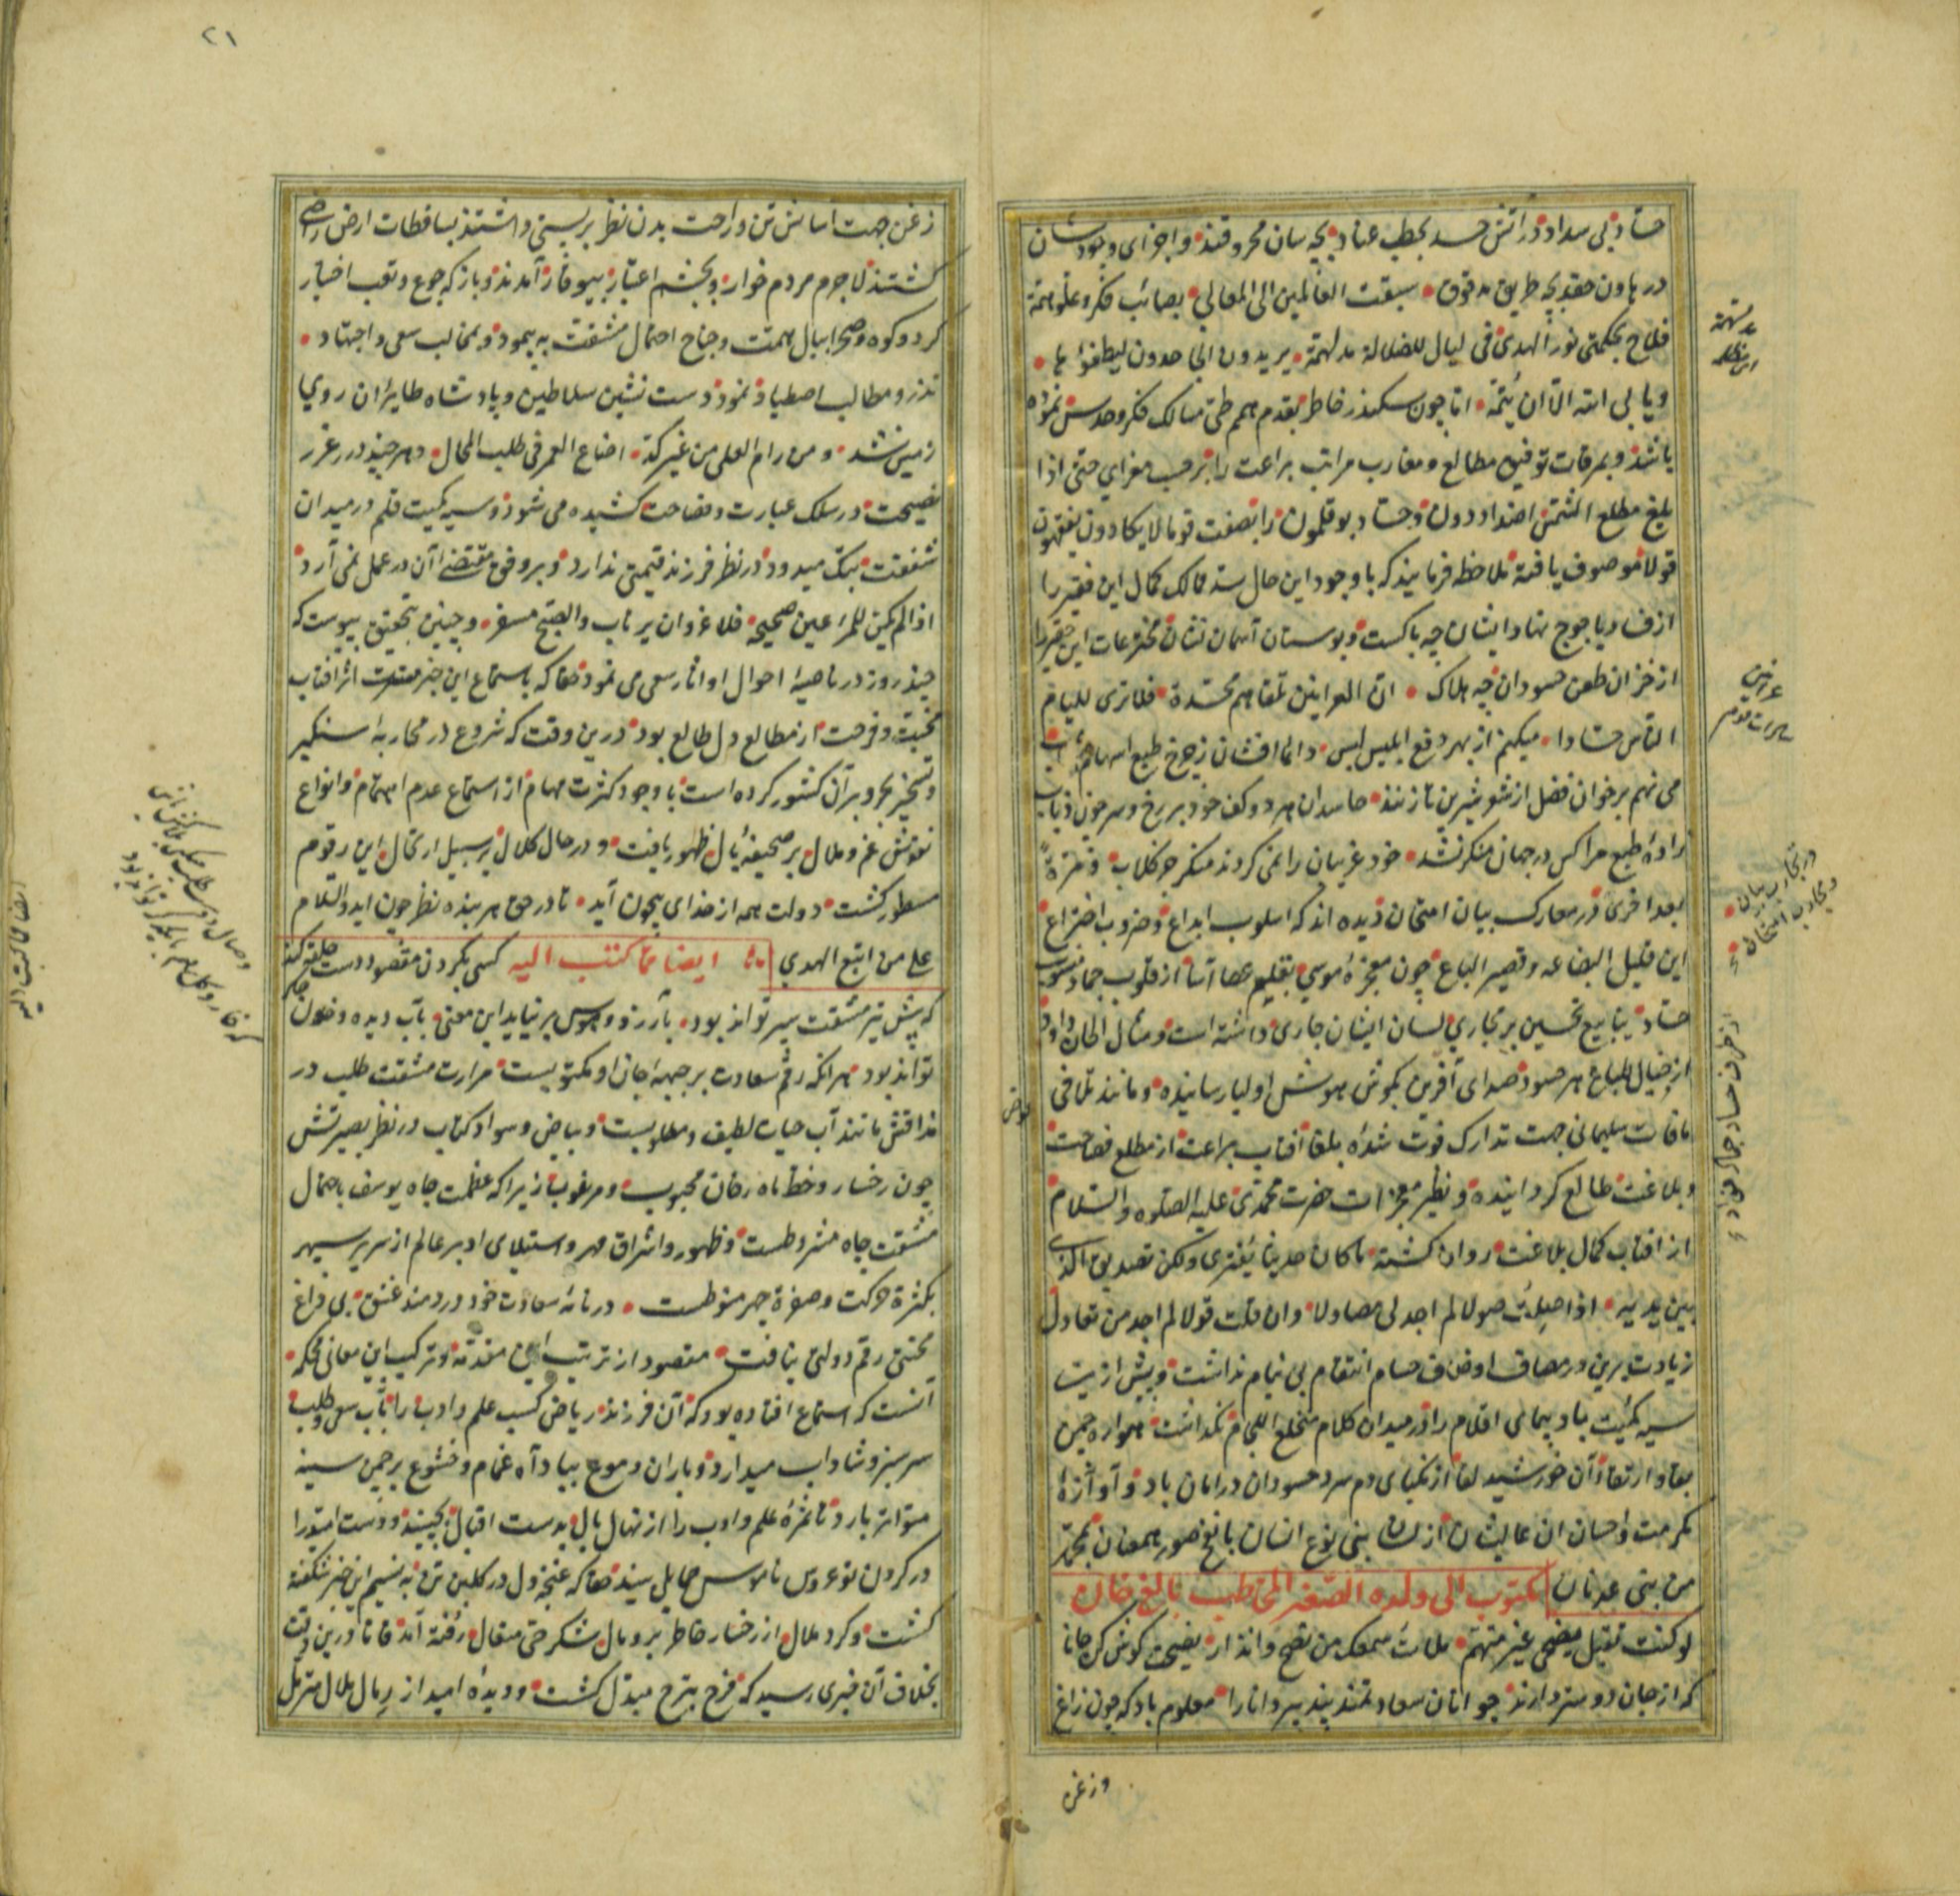 حساد بی سداد در آتش حسد بحطب عناد بچه سان محروقند و اجزای وجودشان
در هاون حقد بچه طریق مدقوق سبقت العالمین الی المعالی بصائب فکر و علو همة
فلاح بحکمتی نور الهدی فی لیال للضلالة مدلهمة یرید الجاحدون لیطفؤها
و یابی الله الا ان یتمه اما چون سکندر خاطر بقدم همم طی مسالک فکر و حدس نموده
باشد و بمرقات توفیق مطالع و مغارب مراتب براعت را بر حسب مغزای حتی اذا
بلغ مطلع الشمس اضداد دون و حساد بوقلمون را بصفت قوما لا یکادون یفقهون
قولا موصوف یافته ملاحظه فرمایند که با وجود این حال سد ممالک کمال این فقیر را
از فساد یاجوج نهاد ایشان چه باکست و بوستان آسمان نشان مخترعات این حقیر را
از خزان طعن حسودان چه هلاک ان العرانین تلقاهم محسدة فلا تری للیام
الناس حسادا میکنم از بهر دفع ابلیس لبس دائما افشان ز چرخ طبع اسهام شهاب
می نهم بر خوان فضل از شعر شیرین تا زنند حاسدان هر دو کف خود بر رخ و سر چون ذباب
زادۀ طبع مرا کس در جهان منکر نشد خود غریبان را نمی گردند منکر جز کلاب و مرة
بعد اخری در معارک بیان امتحان دیده اند که اسلوب ابداع و ضروب اختراع
این قلیل البضاعه و قصیر الباع چون معجزۀ موسی بقلیم عصا آسا از قلوب جماد منسوب
حساد ینابیع تحسین بر مجاری لسان ایشان جاری داشته است و مثال الحان داود
از جبال طباع هر حسود صدای آفرین بگوش هوش اولیا رسانیده و مانند تلافی
مافات سلیمانی جهت تدارک فوت شده بلقا آفتاب براعت از مطلع فصاحت
و بلاغت طالع گردانیده و نظیر معجزات حضرت محمدی علیه الصلوه و السلام
از آفتاب کمال بلاغت روان گشته ما کان حدیثا یفتری ولکن تصدیق الذی
بین یدیه اذا صلت صولا لم اجد لی مصاولا وان قلت قولا لم اجد من تقاول
زیادت برین در مصاف اوصاف حسام انتقام بی نیام نداشت و بیش ازیت
سیه کمیت باد پیمای اقلام را در میدان کلام منخلع اللجام نگذاشت همواره چمن
بقا و ارتقاء آن خورشید لقا از نکبای دم سرد حسودان در امان باد و آوازۀ
مکرمت و احسان آن عالیشان از لسان بنی نوع انسان با نفخ صور همعنان بمحمد
من بنی عدنان مکتوب الی ولده الصغیر المخاطب بالغ خان
لو کنت تقبل نصحی غیر متهم ملأت سمعک من نصح و انذار نصیحت گوش کن جانا
که از جان دوستر دارند جوانان سعادتمند پند پیر دانا را معلوم باد که چون زاغ
وزغن
مدلهمة
عرانین
مهتران قوم
در تجارب بیان
و تجارب امتحان
۲۱
زغن جهت آسایش تن و راحت بدن نظر بر پستی داشتند بساقطات ارض راضی
گشتند لاجرم مردم خوار و بچشم اعتبار بیوقار آمدند و باز که جوع و تعب اختیار
کرد و کوه و صحرا ببال همت و جناح احتمال مشقت به پیمود و بمخالب سعی و اجتهاد
تذرو مطالب اصطیاد نمود دست نشین سلاطین و پادشاه طایران روی
زمین شد و من رام العلی من غیر کد اضاع العمر فی طلب المحال و هر چند درر غرر
نصیحت در سلک عبارت و فصاحت کشیده می شود و سیه کمیت قلم در میدان
شفقت بتک میدود در نظر فرزند قیمتی ندارد و بر وفق مقتضی آن در عمل نمی آرد
اذا لم یکن للمرء عین صحیحه فلا غرو ان یرتاب والصبح مسفر و چنین بتحقیق پیوست که
چند روز در ناصیۀ احوال او آثار سعی می نمود حقا که باستماع این خبر مسرت اثر آفتاب
محبت و فرحت از مطالع دل طالع بود درین وقت که شروع در محاربۀ سنگیسر
و تسخیر بحر و بر آن کشور کرده است با وجود کثرت مهام از استماع عدم اهتمام و انواع
نقوش غم و ملال بر صحیفۀ بال ظهور یافت و در حال کلال بر سبیل ارتجال این رقوم
مسطور گشت دولت همه از خدای بیچون آید تا در حق هر بنده نظر چون آید والسلام
علی من اتبع الهدی ایضا مما کتب الیه کسی بگردن مقصود دست حلقه کند
که پیش تیر مشقت سپر تواند بود بآرزو و هوس بر نیاید این معنی بآب دیده و خون جگر
تواند بود هر آنکه رقم سعادت بر جبهۀ جان او مکتوبست مرارت مشقت طلب در
مذاقش مانند آب حیات لطیف و مطلوبست و بیاض و سواد کتاب در نظر بصیرتش
چون رخسار و خط ماه رخان محبوب و مرغوب زیرا که عظمت جاه یوسف باحتمال
مشقت چاه مشروطست و ظهور و اشراق مهر و استیلای او بر عالم از سریر سپهر
بکثرة حرکت و صفرة چهر منوطست در نامۀ سعادت خود دردمند عشق بی فراغ
محنتی رقم دولتی نیافت مقصود از ترتیب این مقدمه و ترکیب این معانی محکمه
آنست که استماع افتاده بود که آن فرزند ریاض کسب علم و ادب را بآب سعی و طلب
سرسبز و شاداب میدارد و باران دموع بیاد آه غمام و خشوع بر چمن سینه
متواتر بارد تا ثمرۀ علم و ادب را از نهال بال بدست اقبال بچیند و دست امید را
در گردن نو عروس ناموس حمایل بیند حقا که غنچۀ دل در گلبن تن به نسیم این خبر شکفته
گشت و گرد ملال از رخسار خاطر برومال شکر حق متعال رفته آمد فاما درین وقت
بخلاف آن خبری رسید که فرح بترح مبدل گشت و دیدۀ امید از رمال ملال مرتمل